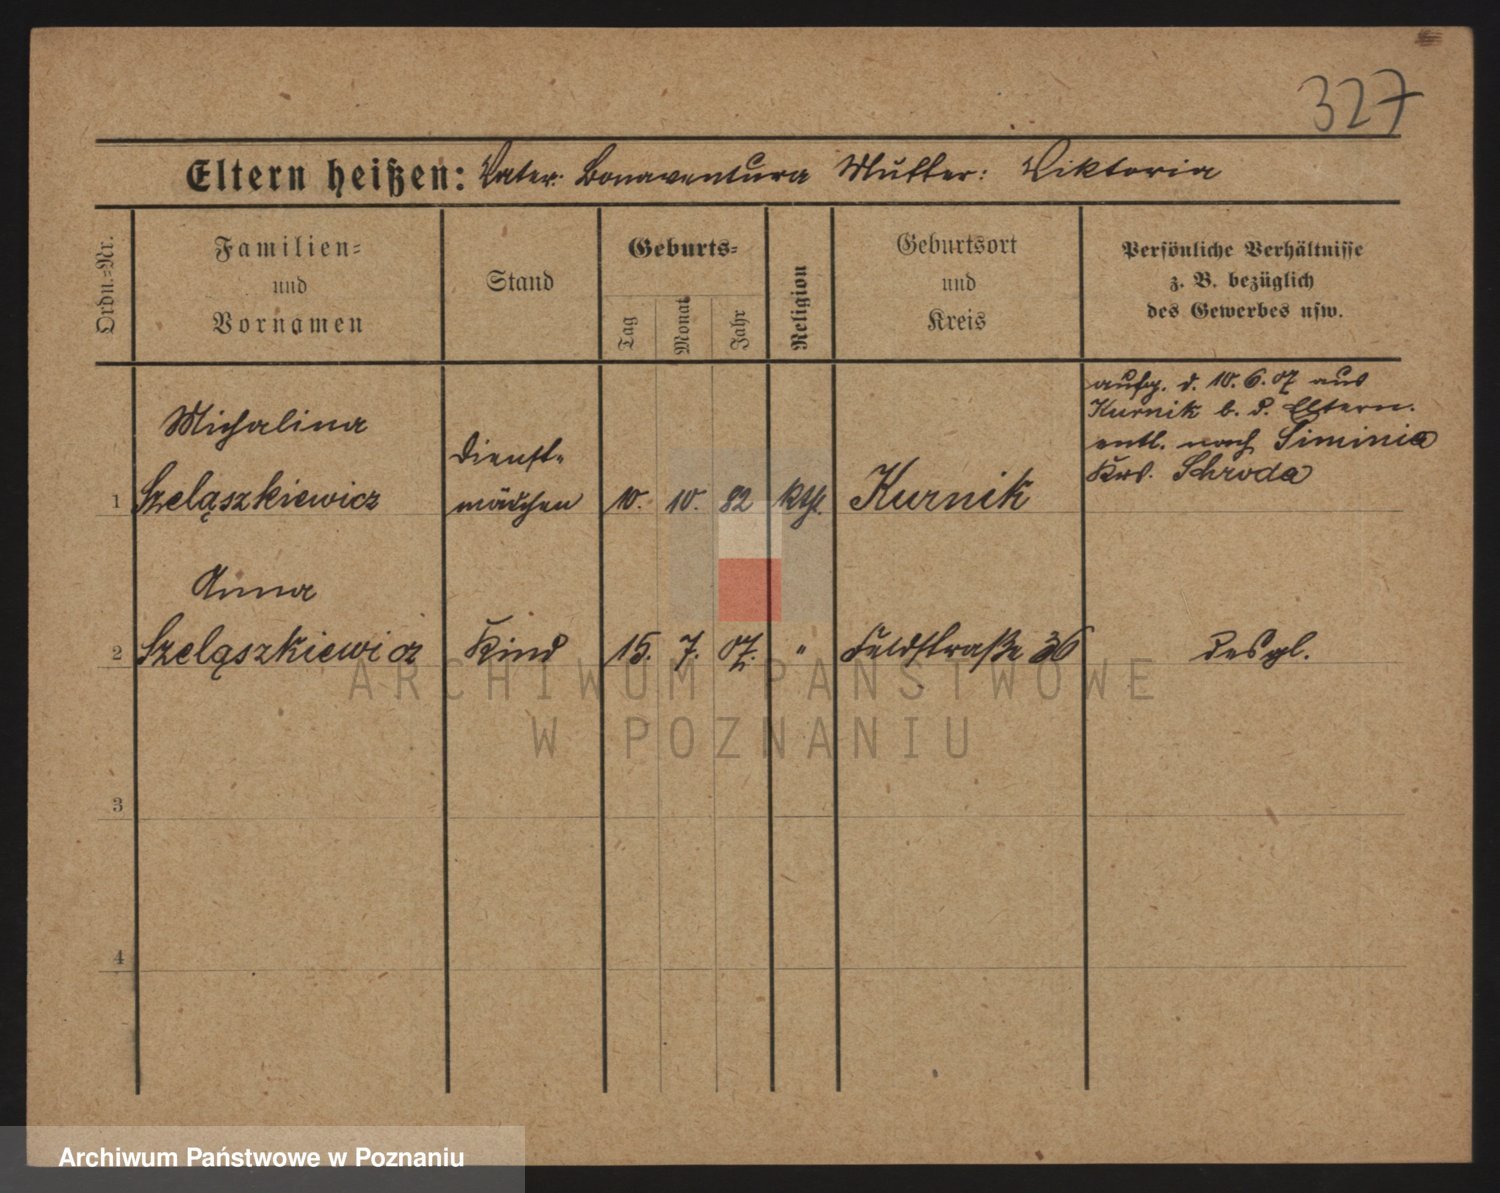 327
Eltern heißen: Vater: Bonaventura Mutter: Viktoria
Ordn.=Nr.
Familien=
und
Vornamen
Stand
Geburts=
Tag
Monat
Jahr
Religion
Geburtsort
und
Kreis
Persönliche Verhältnisse
z. B. bezüglich
des Gewerbes usw.
1
Michalina
Szelązkiewicz
Dienst-
mädchen
10. 10. 82
kth.
Kurnik
aufg. d. 10. 6. 07 aus
Kurnik b. d. Eltern.
entl. nach Siminia
Krs. Schroda
2
Anna
Szelązkiewicz
Kind
15. 7. 07.
"
Feldstraße 36
desgl.
3
4
ARCHIWUM PAŃSTWOWE
W POZNANIU
Archiwum Państwowe w Poznaniu